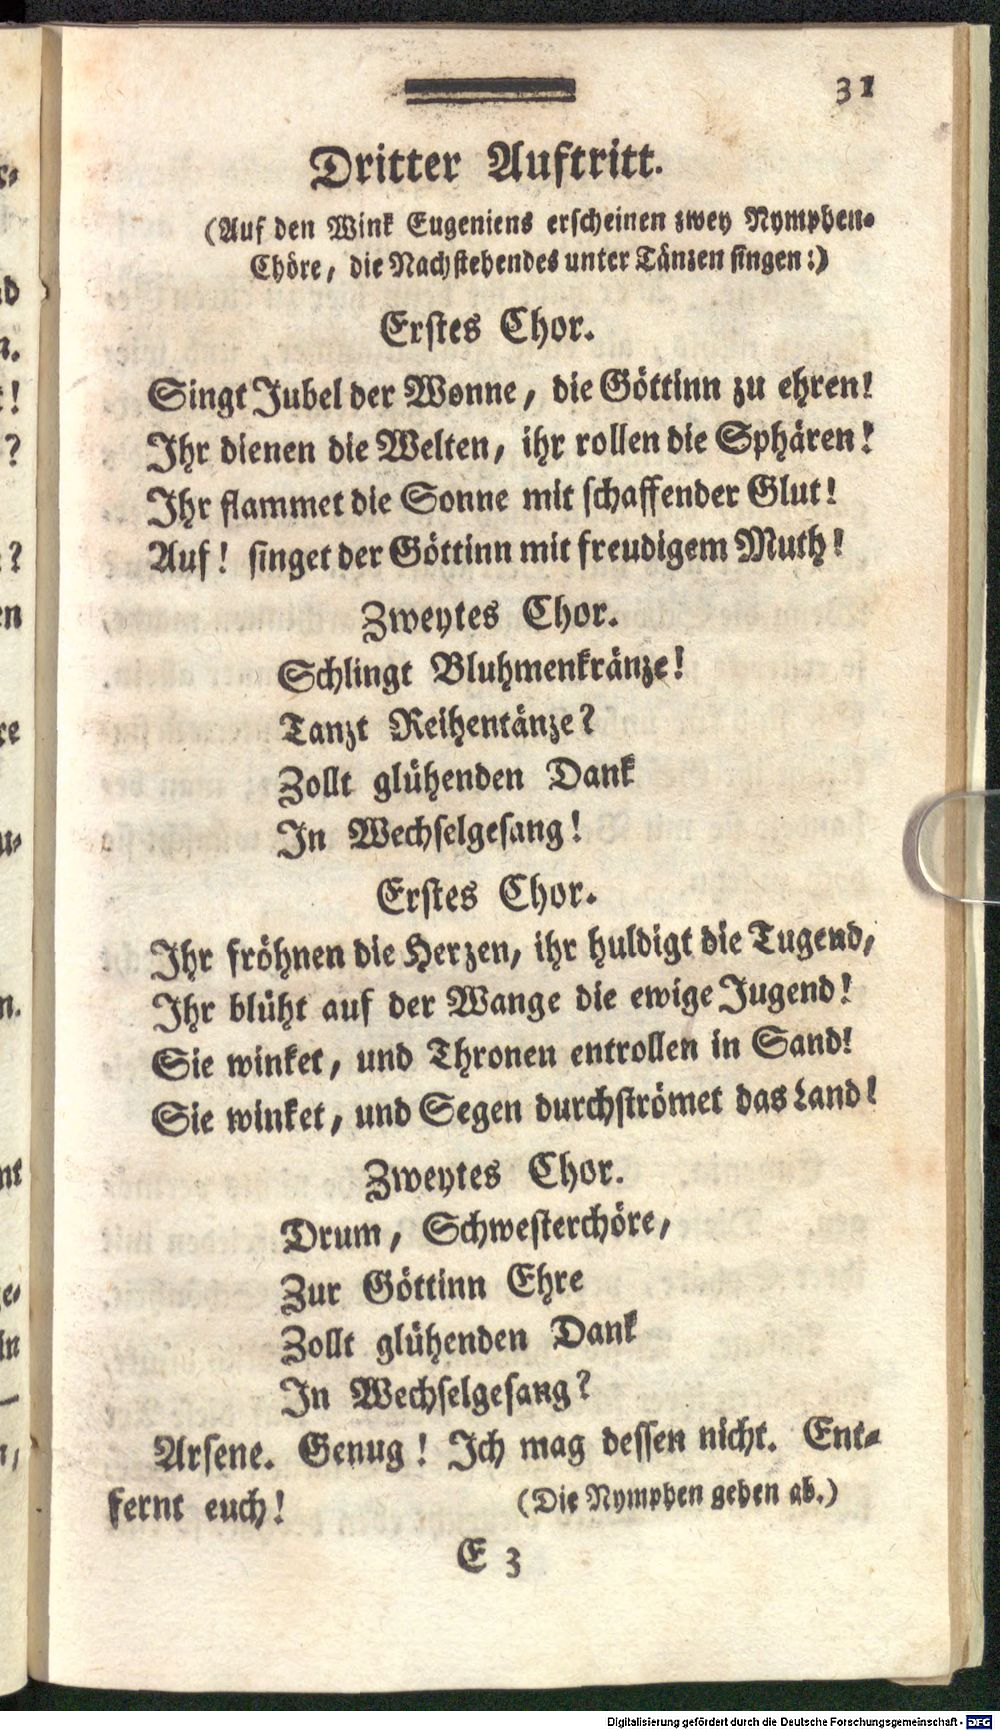 31
Dritter Auftritt.
(Auf den Wink Eugeniens erscheinen zwey Nymphen-
Chöre, die Nachstehendes unter Tänzen singen:)
Erstes Chor.
Singt Jubel der Wonne, die Göttinn zu ehren!
Ihr dienen die Welten, ihr rollen die Sphären!
Ihr flammet die Sonne mit schaffender Glut!
Auf! singet der Göttinn mit freudigem Muth!
Zweytes Chor.
Schlingt Bluhmenkränze!
Tanzt Reihentänze?
Zollt glühenden Dank
In Wechselgesang!
Erstes Chor.
Ihr fröhnen die Herzen, ihr huldigt die Tugend,
Ihr blüht auf der Wange die ewige Jugend!
Sie winket, und Thronen entrollen in Sand!
Sie winket, und Segen durchströmet das Land!
Zweytes Chor.
Drum, Schwesterchöre,
Zur Göttinn Ehre
Zollt glühenden Dank
In Wechselgesang?
Arsene. Genug! Ich mag dessen nicht. Ent-
fernt euch! (Die Nymphen gehen ab.)
E 3
Digitalisierung gefördert durch die Deutsche Forschungsgemeinschaft - DFG